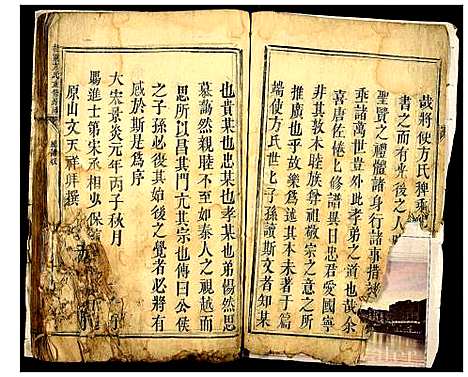 哉將使方氏稗
書之而有光後之人
聖賢之禮體諸身行諸事措諸
乘諸萬世豈外此孝弟之道也哉余
喜唐佐倦匕修譜異日忠君愛國寧
非其敦本睦族尊祖敬宗之意之所
推廣也乎故樂為述其本末著于篇
端使方氏世匕子孫讀斯文者知某
也貴某也忠某也孝某也弟惕然思
慕藹然親睦不至如泰人之視越而
思所以昌其門亢其宗也傳曰公侯
之子孫必復其始後之覺者必將有
感於斯是為序
大宋景炎元年丙子秋月
賜進士第宋丞相兼
原山文天祥拜撰